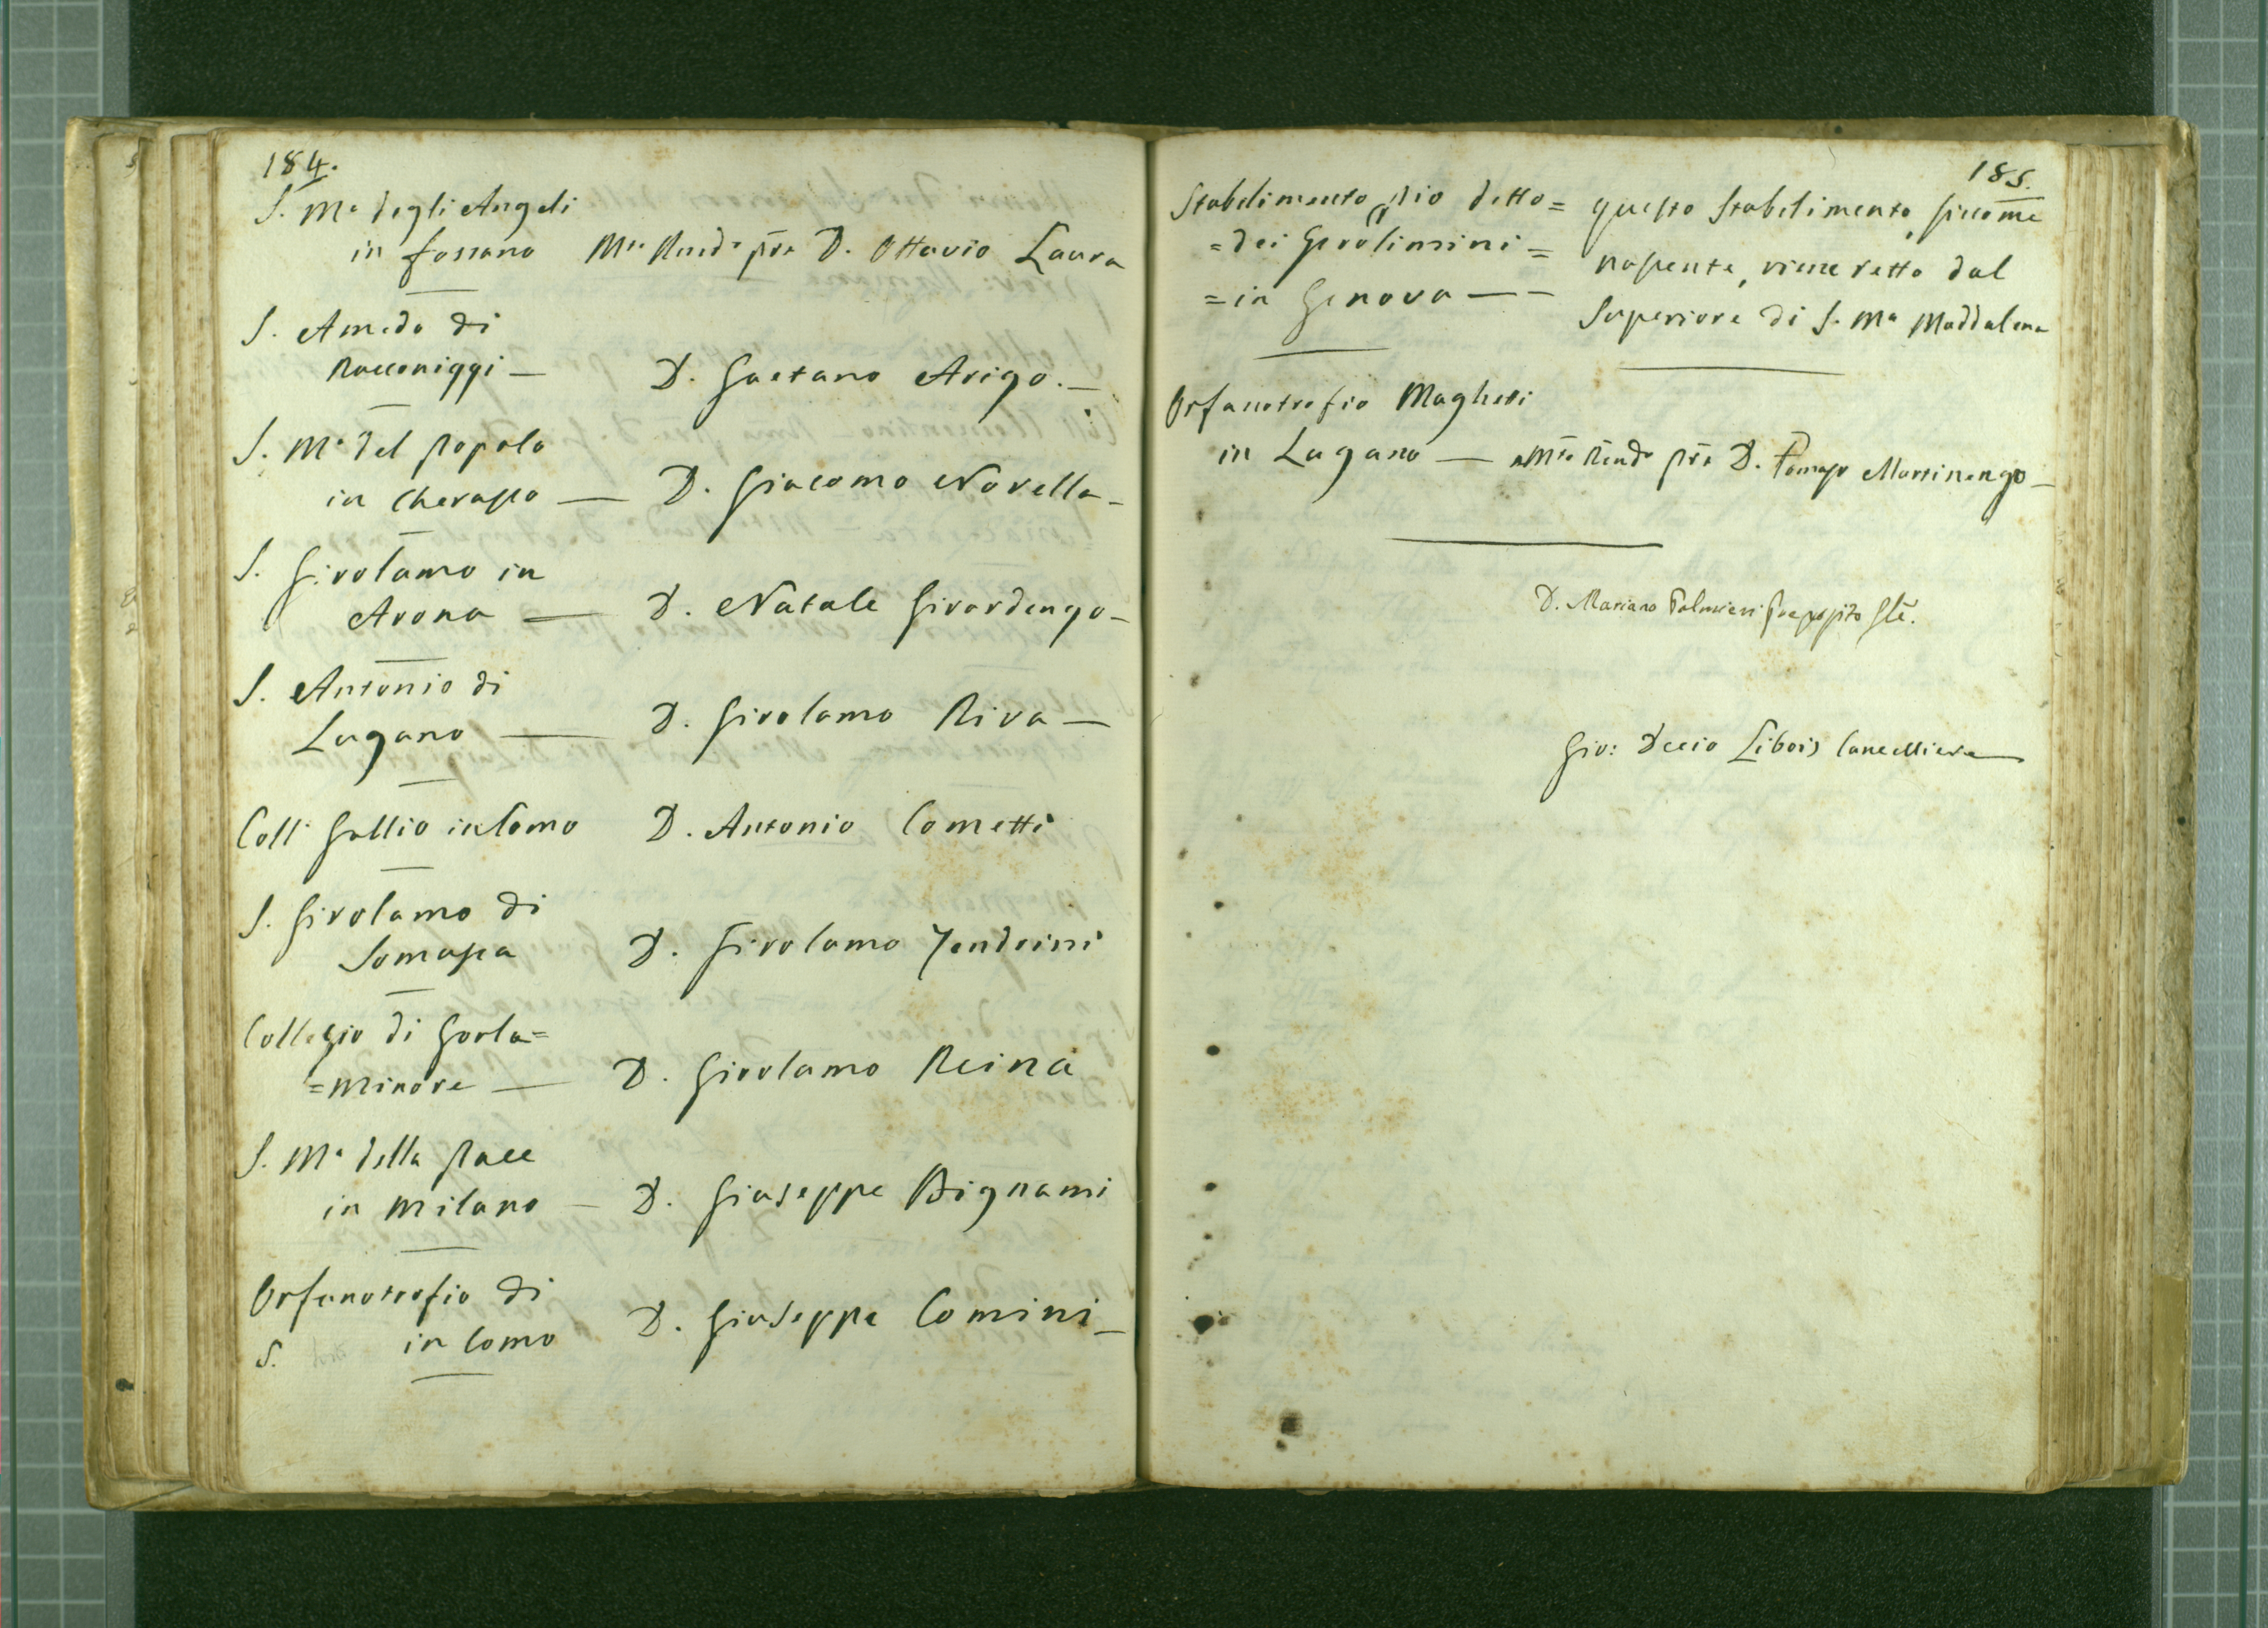 184.
S. Mª degli Angeli
in Fossano Mto Rndo pre D. Ottavio Laura
S. Amedo di
Racconiggi — D. Gaetano Arigo. —
S. Mª del popolo
in Cherasco — D. Giacomo Novella —
S. Girolamo in
Arona — D. Natale Girardengo —
S. Antonio di
Lugano — D. Girolamo Riva —
Coll° Gallio in Como D. Antonio Cometti
S. Girolamo di
Somasca D. Girolamo Zendrini
Collegio di Gorla=
=minore — D. Girolamo Reina
S. Mª della pace
in Milano — D. Giuseppe Bignami
Orfanotrofio di
S. in Como D. Giuseppe Comini —
185.
Stabilimento pio detto = questo stabilimento, siccome
=dei Gerolimini = nascente, viene retto dal
=in Genova — — Superiore di S. Mª Maddalena
Orfanotrofio Maghetti
in Lugano — Mto Rndo pre D. Tomaso Martinengo —
D. Mariano Palmieri Preposito Gle.
Gio: Decio Libois Cancelliere